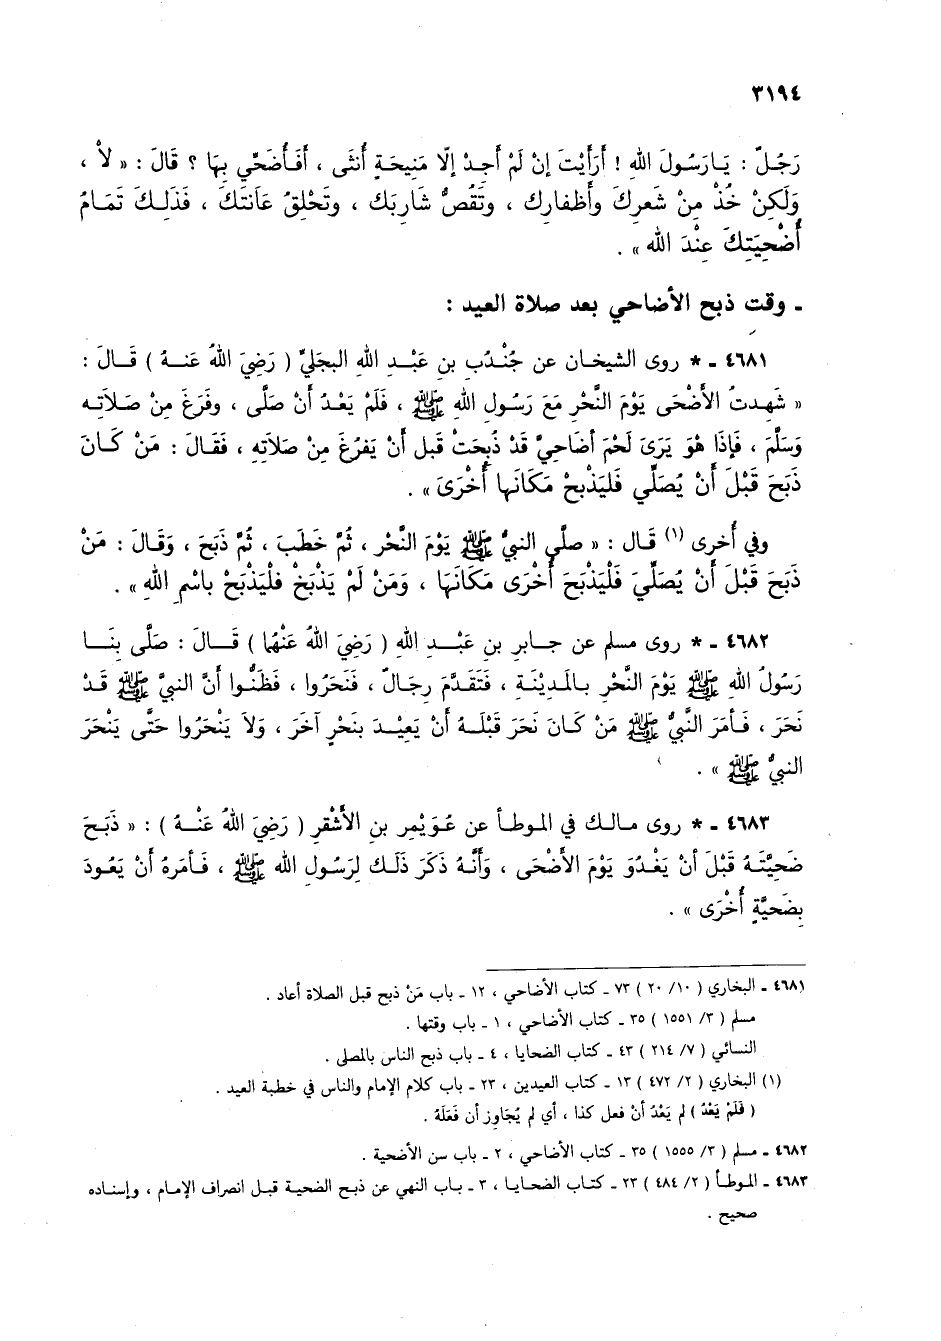 ٣١٩٤
رَجُلٌ : يَارَسُولَ الله ! أَرَأَيْتَ إِنْ لَمْ أَجِدْ إلّا مَنِيحَةً أُنثَى ، أَفَأُضَحِّي بِهَا ؟ قَالَ : « لاَ ،
وَلَكِنْ خُذْ مِنْ شَعرِكَ وأَظفارِك ، وتَقُصُّ شَارِبَك ، وتَحْلِقُ عَانَتَكَ ، فَذَلِكَ تَمَامُ
أُضْحِيَتِكَ عِنْدَ الله » .
ـ وقت ذبح الأضاحي بعد صلاة العيد :
٤٦٨١ ـ * روى الشيخان عن جُنْدُبِ بنِ عَبْدِ اللهِ البجَليِّ ( رَضِيَ اللهُ عَنهُ ) قَالَ :
« شَهِدتُ الأَضْحَى يَوْمَ النَّحْرِ مَعَ رَسُولِ اللهِ ﷺ ، فَلَمْ يَعْدُ أَنْ صَلَّى ، وفَرَغَ مِنْ صَلَاتِه
وَسَلَّمَ ، فَإِذَا هُوَ يَرَى لَحْمَ أَضَاحِيَّ قَدْ ذُبِحَتْ قَبلَ أَنْ يَفرُغَ مِنْ صَلَاتِهِ ، فَقَالَ : مَنْ كَانَ
ذَبَحَ قَبْلَ أَنْ يُصَلِّي فَليَذْبِحْ مَكَانَها أُخْرَىَ » .
وفي أُخرى (١) قَال : « صلَّى النبيُّ ﷺ يَوْمَ النَّحْرِ ، ثُمَّ خَطَبَ ، ثُمَّ ذَبَحَ ، وَقَالَ : مَنْ
ذَبَحَ قَبْلَ أَنْ يُصَلِّيَ فَلْيَذْبَحَ أُخْرَى مَكَانَهَا ، وَمَنْ لَمْ يَذْبَحْ فَلْيَذْبَحْ بِاسْمِ اللهِ » .
٤٦٨٢ ـ * روى مسلم عن جابرِ بنِ عَبْدِ اللهِ ( رَضِيَ اللهُ عَنْهُما ) قَالَ : صَلَّى بِنَا
رَسُولُ اللهِ ﷺ يَوْمَ النَّحْرِ بِالمَدِيْنَةِ ، فَتَقَدَّمَ رِجَالٌ ، فَنَحَرُوا ، فَظَنُّوا أَنَّ النبيَّ ﷺ قَدْ
نَحَرَ ، فَأمَرَ النَّبيُّ ﷺ مَنْ كَانَ نَحَرَ قَبْلَهُ أَنْ يَعِيْدَ بنَحْرٍ آخَرَ ، وَلاَ يَنْحَرُوا حَتَّى يَنْحَرَ
النبيُّ ﷺ » .
٤٦٨٣ ـ * روى مالك في الموطأ عن عُوَيْمِرِ بنِ الأَشْقَرِ ( رَضِيَ اللهُ عَنْهُ ) : « ذَبَحَ
ضَحِيَّتَهُ قَبْلَ أنْ يَغْدُوَ يَوْمَ الأَضْحَى ، وَأَنَّهُ ذَكَرَ ذَلِكَ لِرَسُولِ الله ﷺ ، فَأمَرَهُ أَنْ يَعُودَ
بِضَحيَّةٍ أُخْرَى » .
٤٦٨١ ـ البخاري ( ١٠/ ٢٠ ) ٧٣ ـ كتاب الأضاحي ، ١٢ ـ باب مَنْ ذبح قبل الصلاة أعاد .
مسلم ( ٣/ ١٥٥١ ) ٣٥ ـ كتاب الأضاحي ، ١ ـ باب وقتها .
النسائي ( ٧/ ٢١٤ ) ٤٣ ـ كتاب الضحايا ، ٤ ـ باب ذبح الناس بالمصلى .
(١) البخاري ( ٢/ ٤٧٢ ) ١٣ ـ كتاب العيدين ، ٢٣ ـ باب كلام الإمام والناس في خطبة العيد .
( فَلَمْ يَعْدُ ) لم يَعْدُ أنْ فعل كذا ، أي لم يُجَاوِز أن فَعَلَهُ .
٤٦٨٢ ـ مسلم ( ٣/ ١٥٥٥ ) ٣٥ ـ كتاب الأضاحي ، ٢ ـ باب سن الأضحية .
٤٦٨٣ ـ الموطأ ( ٢/ ٤٨٤ ) ٢٣ ـ كتاب الضحايا ، ٣ ـ باب النهي عن ذبح الضحية قبل انصراف الإمام ، وإسناده
صحيح .